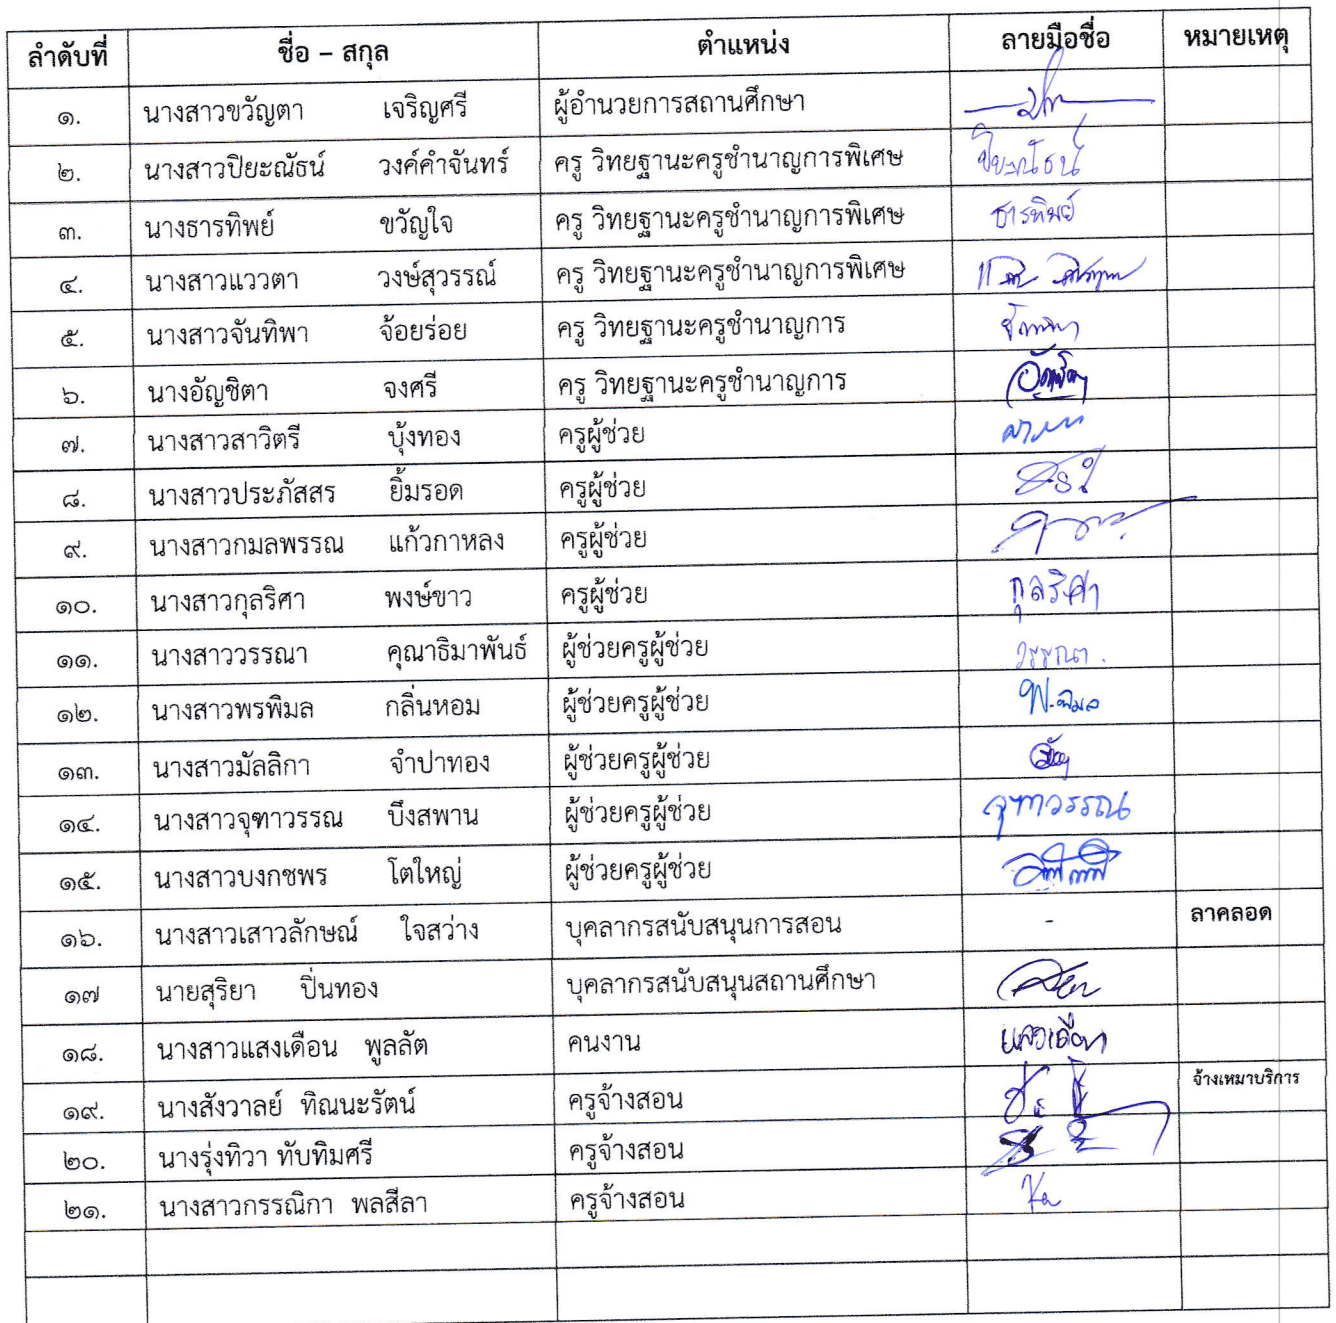 ลำดับที่ ชื่อ – สกุล ตำแหน่ง ลายมือชื่อ หมายเหตุ
๑. นางสาวขวัญตา เจริญศรี ผู้อำนวยการสถานศึกษา
๒. นางสาวปิยะณัธน์ วงค์คำจันทร์ ครู วิทยฐานะครูชำนาญการพิเศษ ปิยะณัธน์
๓. นางธารทิพย์ ขวัญใจ ครู วิทยฐานะครูชำนาญการพิเศษ ธารทิพย์
๔. นางสาวแววตา วงษ์สุวรรณ์ ครู วิทยฐานะครูชำนาญการพิเศษ
๕. นางสาวจันทิพา จ้อยร่อย ครู วิทยฐานะครูชำนาญการ
๖. นางอัญชิตา จงศรี ครู วิทยฐานะครูชำนาญการ
๗. นางสาวสาวิตรี บุ้งทอง ครูผู้ช่วย
๘. นางสาวประภัสสร ยิ้มรอด ครูผู้ช่วย
๙. นางสาวกมลพรรณ แก้วกาหลง ครูผู้ช่วย
๑๐. นางสาวกุลริศา พงษ์ขาว ครูผู้ช่วย กุลริศา
๑๑. นางสาววรรณา คุณาธิมาพันธ์ ผู้ช่วยครูผู้ช่วย วรรณา
๑๒. นางสาวพรพิมล กลิ่นหอม ผู้ช่วยครูผู้ช่วย พ.พิมล
๑๓. นางสาวมัลลิกา จำปาทอง ผู้ช่วยครูผู้ช่วย
๑๔. นางสาวจุฑาวรรณ บึงสพาน ผู้ช่วยครูผู้ช่วย จุฑาวรรณ
๑๕. นางสาวบงกชพร โตใหญ่ ผู้ช่วยครูผู้ช่วย
๑๖. นางสาวเสาวลักษณ์ ใจสว่าง บุคลากรสนับสนุนการสอน - ลาคลอด
๑๗ นายสุริยา ปิ่นทอง บุคลากรสนับสนุนสถานศึกษา
๑๘. นางสาวแสงเดือน พูลลัต คนงาน แสงเดือน
๑๙. นางสังวาลย์ ทิณนะรัตน์ ครูจ้างสอน จ้างเหมาบริการ
๒๐. นางรุ่งทิวา ทับทิมศรี ครูจ้างสอน
๒๑. นางสาวกรรณิกา พลสีลา ครูจ้างสอน